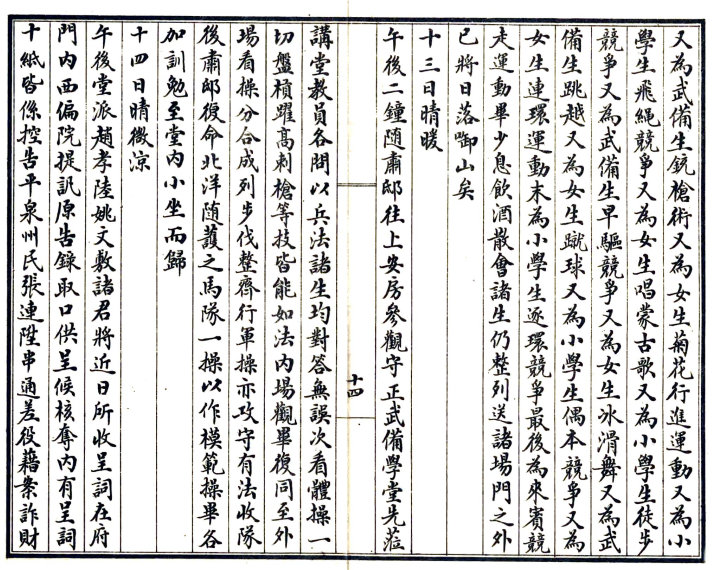 又為武備生銃槍術又為女生菊花行進運動又為小
學生飛繩競爭又為女生唱蒙古歌又為小學生徒步
競爭又為武備生旱驅競爭又為女生冰滑舞又為武
備生跳越又為女生蹴球又為小學生偶本競爭又為
女生連環運動末為小學生逐環競爭最後為來賓競
走運動畢少息飲酒散會諸生仍整列送諸場門之外
已將日落啣山矣
十三日晴暖
午後二鐘隨肅邸往上安房參觀守正武備學堂先蒞
十四
講堂教員各問以兵法諸生均對答無誤次看體操一
切盤槓躍高刺槍等技皆能如法內場觀畢復同至外
場看操分合成列步伐整齊行軍操亦攻守有法收隊
後肅邸復命北洋隨護之馬隊一操以作模範操畢各
加訓勉至堂內小坐而歸
十四日晴微涼
午後堂派趙孝陸姚文敷諸君將近日所收呈詞在府
門內西偏院提訊原告錄取口供呈候核奪內有呈詞
十紙皆係控告平泉州民張連陞串通差役藉案詐財